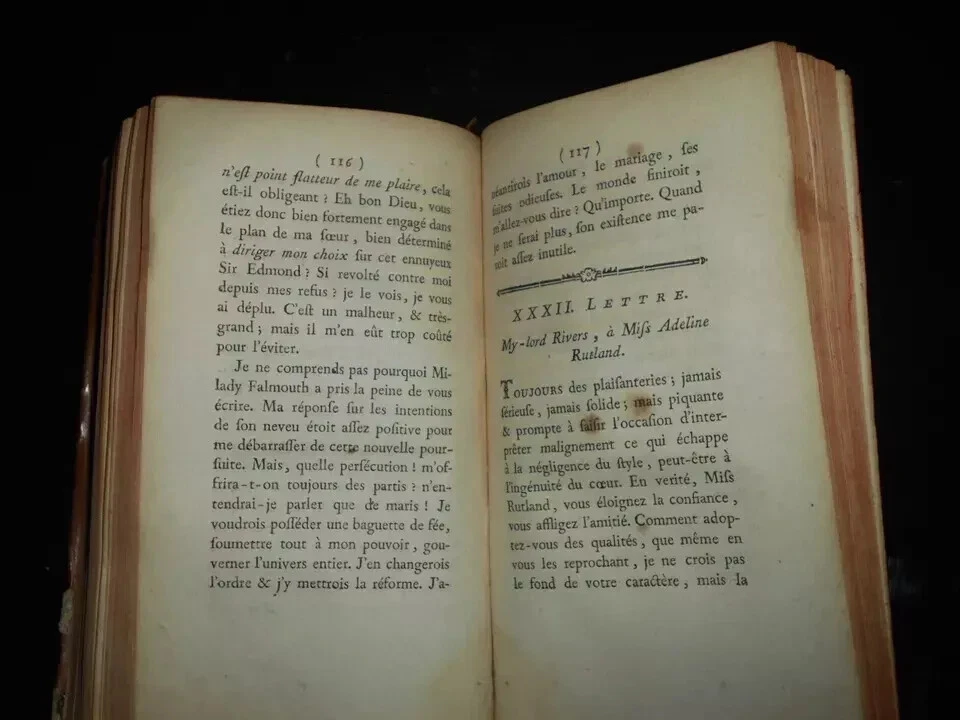 ( 116 )
n'eſt point flatteur de me plaire, cela
eſt-il obligeant ? Eh bon Dieu, vous
étiez donc bien fortement engagé dans
le plan de ma sœur, bien déterminé
à diriger mon choix ſur cet ennuyeux
Sir Edmond ? Si revolté contre moi
depuis mes refus ? je le vois, je vous
ai déplu. C'eſt un malheur, & très-
grand ; mais il m'en eût trop coûté
pour l'éviter.
Je ne comprends pas pourquoi Mi-
lady Falmouth a pris la peine de vous
écrire. Ma réponſe ſur les intentions
de ſon neveu étoit aſſez poſitive pour
me débarraſſer de cette nouvelle pour-
ſuite. Mais, quelle perſécution ! m'of-
frira-t-on toujours des partis ? n'en-
tendrai-je parler que de maris ! Je
voudrois poſſéder une baguette de fée,
ſoumettre tout à mon pouvoir, gou-
verner l'univers entier. J'en changerois
l'ordre & j'y mettrois la réforme. J'a-
( 117 )
néantirois l'amour, le mariage, ſes
ſuites odieuſes. Le monde finiroit,
m'allez-vous dire ? Qu'importe. Quand
je ne ſerai plus, ſon exiſtence me pa-
roit aſſez inutile.
XXXII. LETTRE.
My-lord Rivers, à Miſs Adeline
Rutland.
TOUJOURS des plaiſanteries ; jamais
ſérieuſe, jamais ſolide ; mais piquante
& prompte à ſaiſir l'occaſion d'inter-
prêter malignement ce qui échappe
à la négligence du ſtyle, peut-être à
l'ingénuité du cœur. En verité, Miſs
Rutland, vous éloignez la confiance,
vous affligez l'amitié. Comment adop-
tez-vous des qualités, que même en
vous les reprochant, je ne crois pas
le fond de votre caractère, mais la